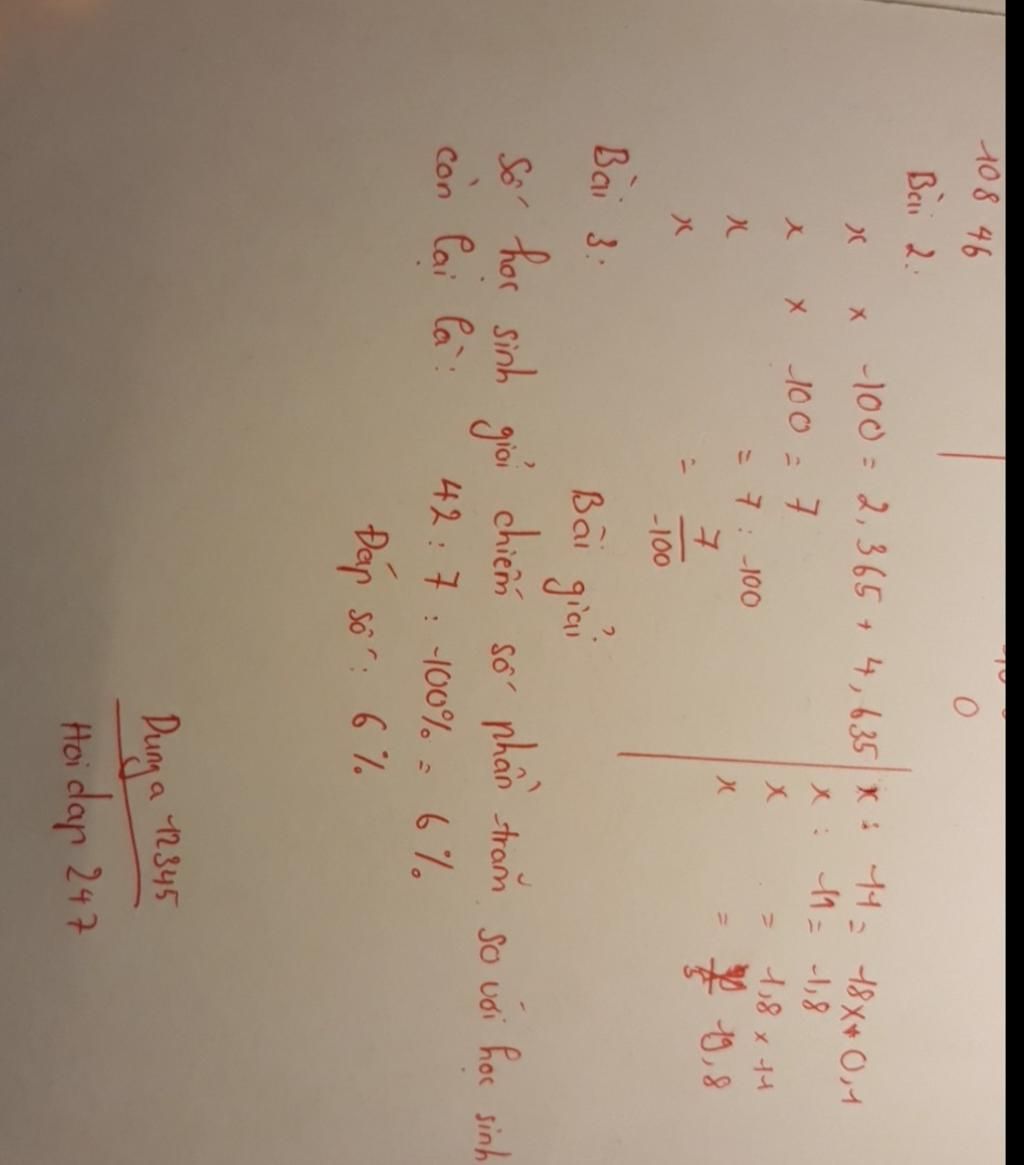 108 46
0
Bài 2:
x x 100 = 2,365 + 4,635
x x 100 = 7
x = 7 : 100
x = 7/100
x : 11 = 18 x 0,1
x : 11 = 1,8
x = 1,8 x 11
x = 19,8
Bài 3:
Bài giải
Số học sinh giỏi chiếm số phần trăm so với học sinh
còn lại là:
42 : 7 : 100% = 6%
Đáp số: 6%
Dunga 12345
Hoidap 247